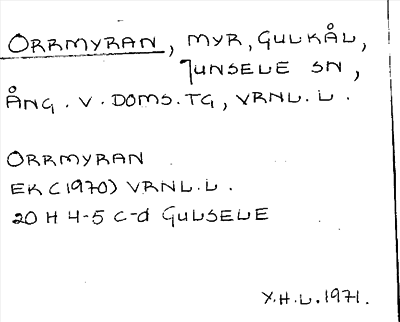 ORRMYRAN, MYR, GULKÅL,
JUNSELE SN,
ÅNG. V. DOMS. TG, VRNL. L.
ORRMYRAN
EK (1970) VRNL. L.
20 H 4-5 c-d GULSELE
Y.H.L. 1971.